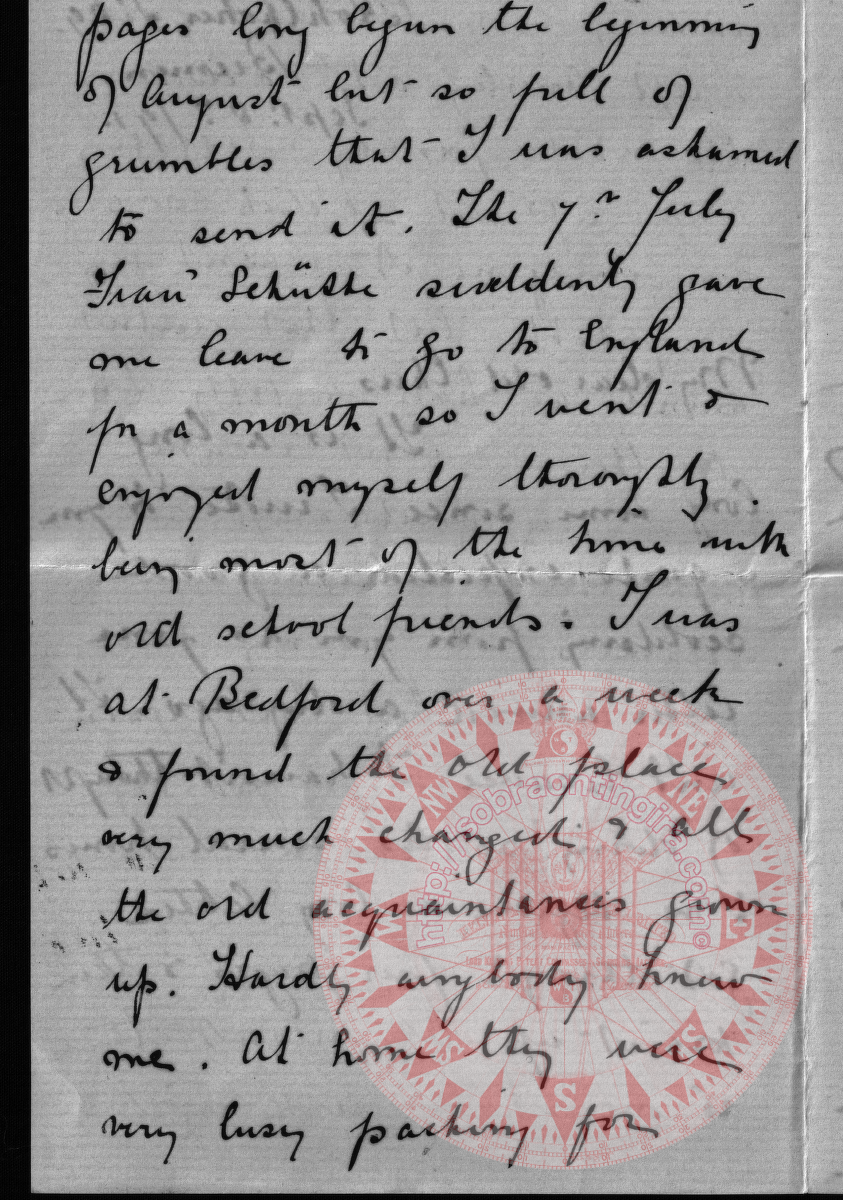 pages long begun the beginning
of August but so full of
grumbles that I was ashamed
to send it. The 7th July
Frau Schütte suddently gave
me leave to go to England
for a month so I went &
enjoyed myself thoroughly.
being most of the time with
old school friends. I was
at Bedford over a week
& found the old place
very much changed & all
the old acquaintances grown
up. Hardly anybody knew
me. At home they were
very busy packing for
http://sobraontingira.com
NW
NE
SW
SE
S